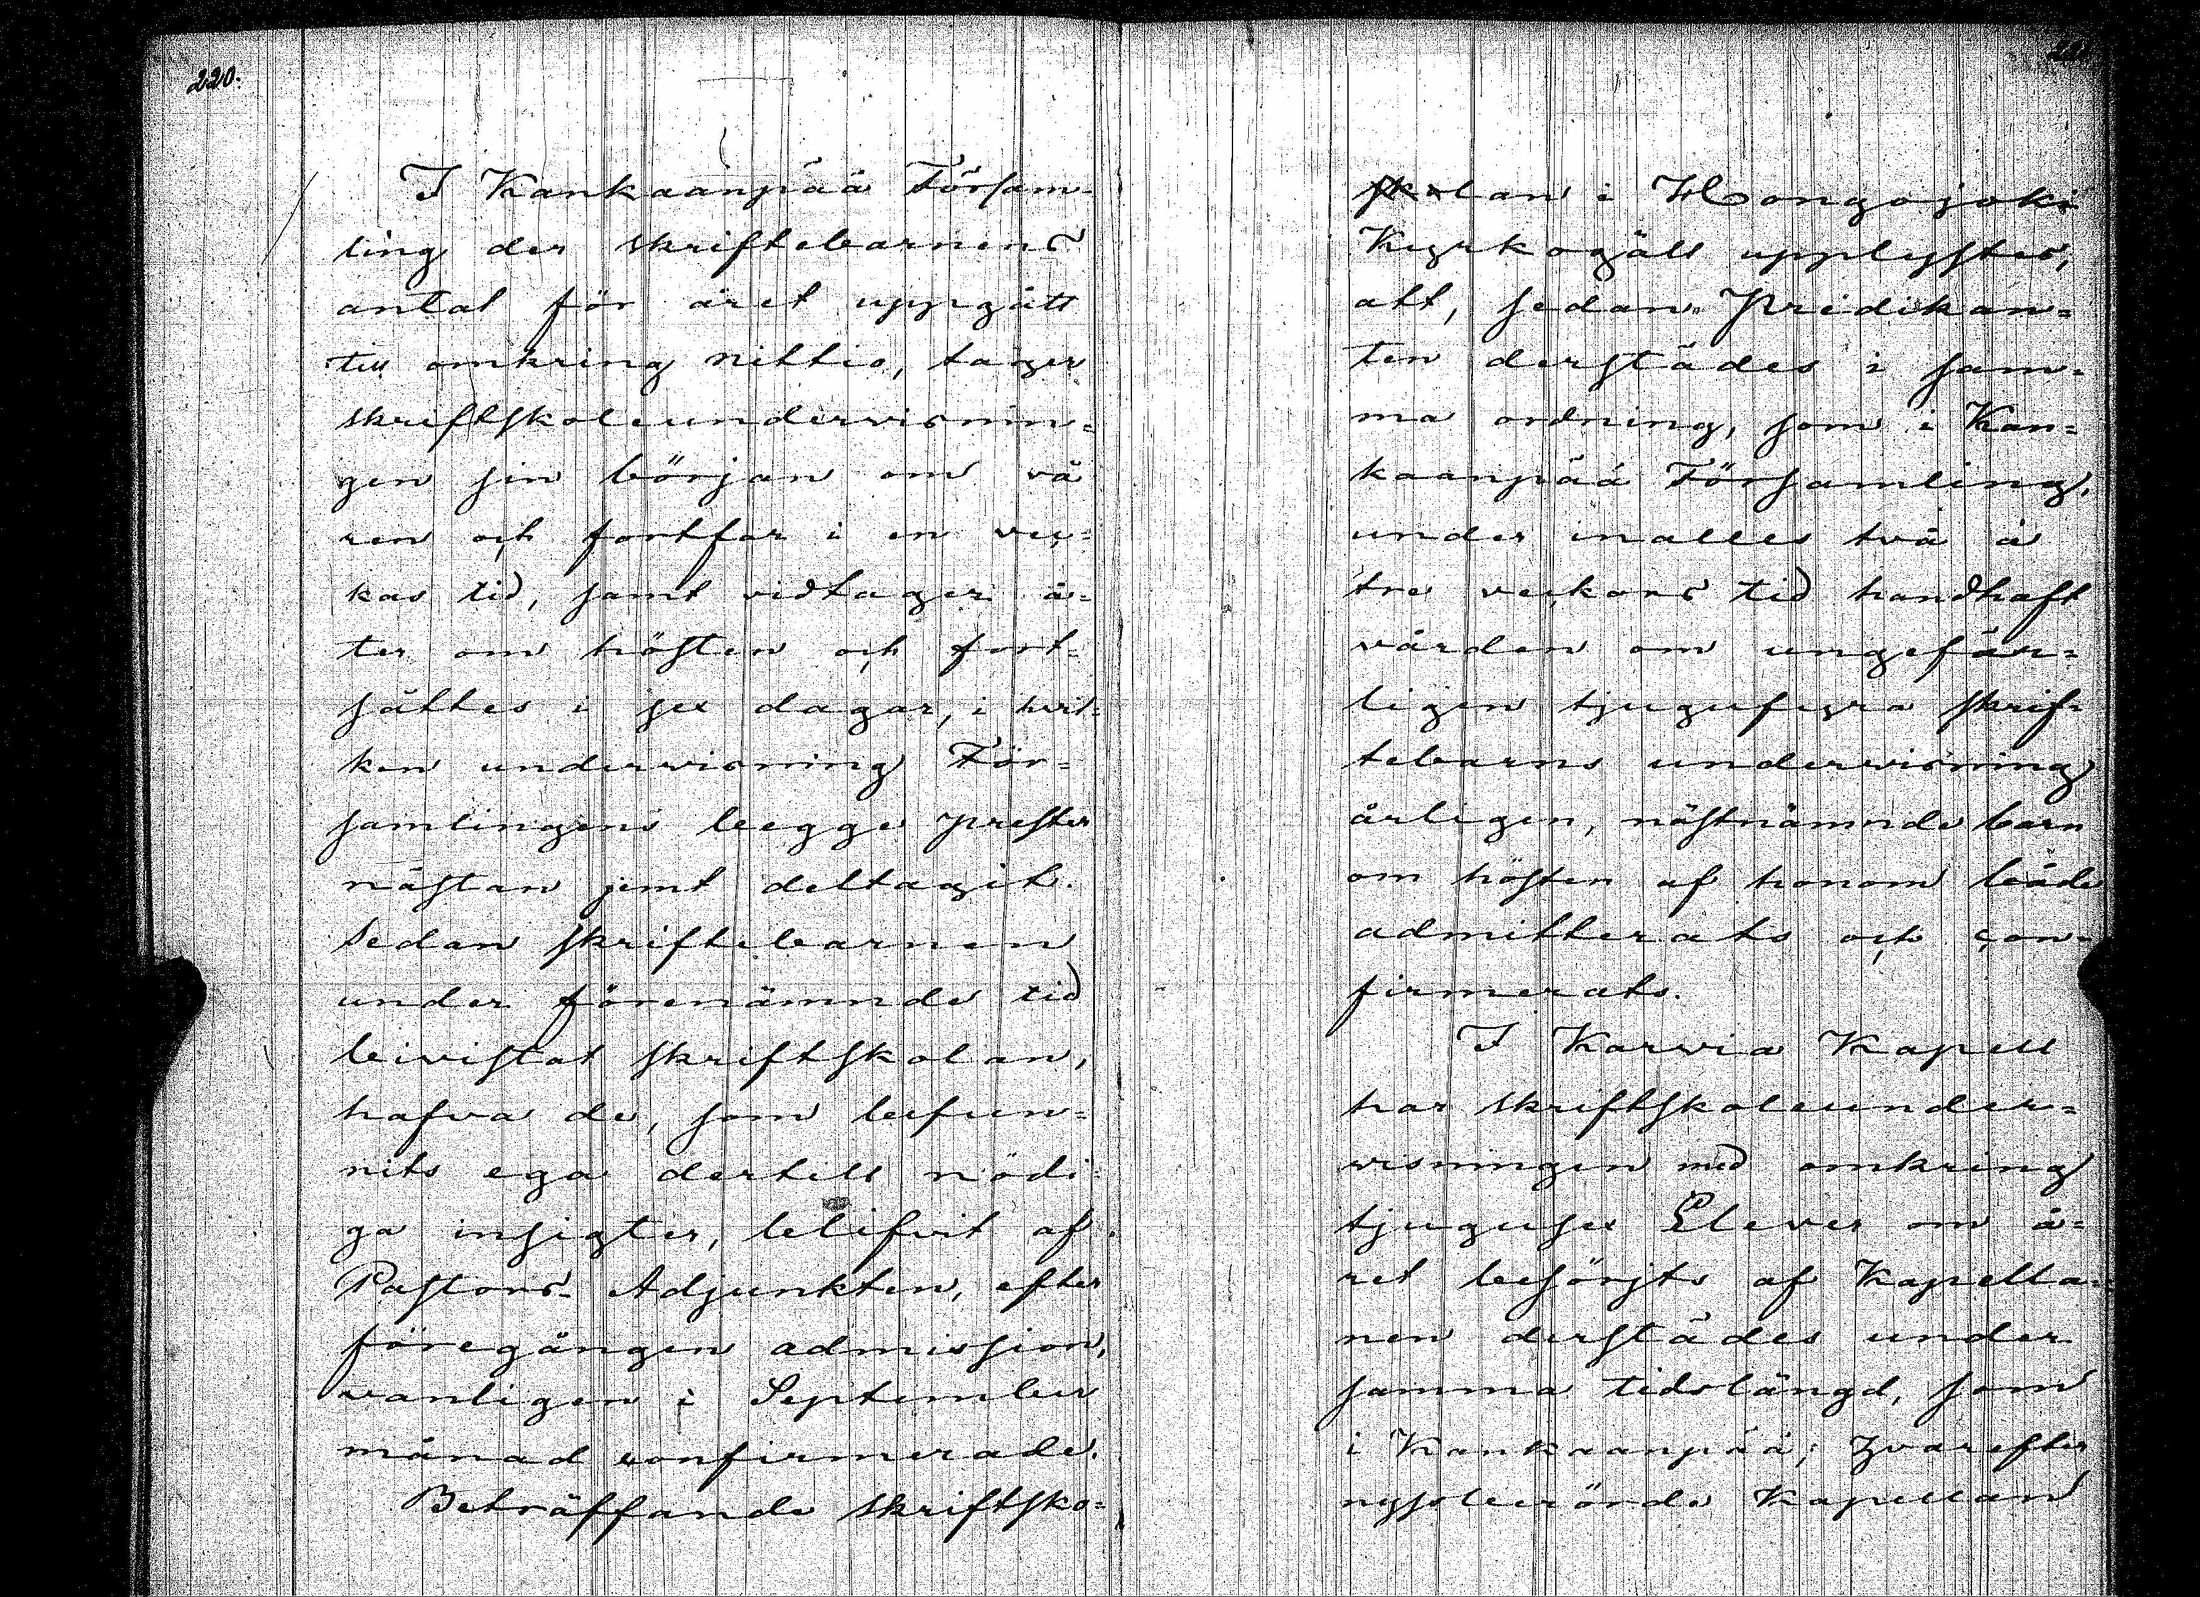 220.
I Kankaanpää Försam-
ling der skriftebarnens
antal för året uppgått
till omkring nittio, tager
skriftskoleundervisnin=
gen sin början om vå
ren och fortfar i en vec=
kas tid, samt vidtager å=
ter om hösten och fort=
sättes i sex dagar, i hvil=
ken undervisning För=
samlingens begge prester
nästan jemt deltagit.
Sedan skriftebarnen
under förenämnde tid
bivistat skriftskolan,
hafva de, som befun=
nits ega dertill nödi=
ga insigter, blifvit af
Pastors-Adjunkten, efter
föregången admission,
vanligen i September
månad confirmerade.
Beträffande skriftsko=
skolan i Hongojoki
Kyrkogäll upplystes,
att, sedan Predikan=
ten derstädes i sam=
ma ordning, som i Kan=
kaanpää Församling,
under inalles två à
tre veckors tid handhaft
vården om ungefär=
ligen tjugufyra skrif=
tebarns undervisning
årligen, nästnämnde barn
om hösten af honom både
admitterats och con=
firmerats.
I Karvia Kapell
har skriftskoleunder=
visningen med omkring
tjugusex Elever om å=
ret besörjts af Kapella=
nen derstädes under
samma tidslängd, som
i Kankaanpää; hvarefter
nyssberörde Kapellan